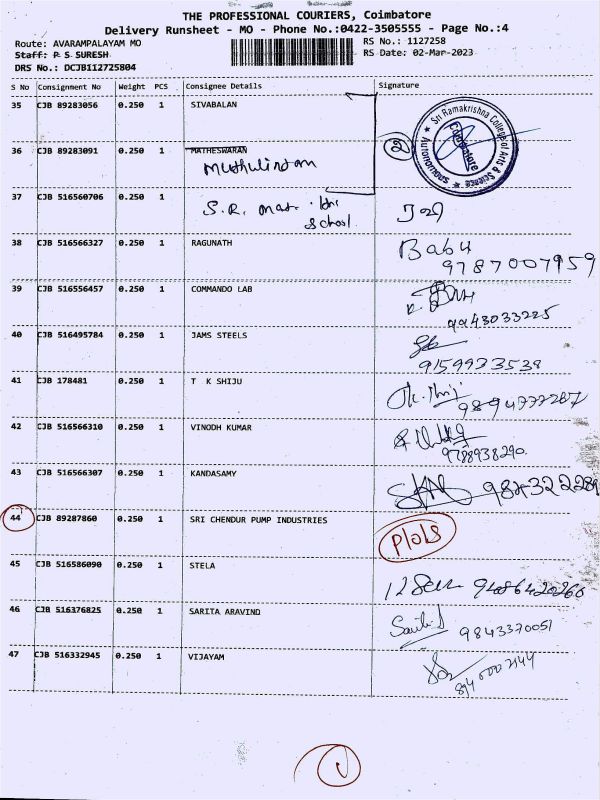 THE PROFESSIONAL COURIERS, Coimbatore
Delivery Runsheet - MO - Phone No.:0422-3505555 - Page No.:4
Route: AVARAMPALAYAM MO
RS No.: 1127258
Staff: P S SURESH
RS Date: 02-Mar-2023
DRS No.: DCJB112725804
S No Consignment No Weight PCS Consignee Details Signature
35 CJB 89283056 0.250 1 SIVABALAN
Sri Ramakrishna College of Arts & Science
Autonomous
Coimbatore
36 CJB 89283091 0.250 1 MATHESWARAN
2
37 CJB 516560706 0.250 1
S.R. mat.
School
38 CJB 516566327 0.250 1 RAGUNATH Babu
9787007959
39 CJB 516556457 0.250 1 COMMANDO LAB
9943033225
40 CJB 516495784 0.250 1 JAMS STEELS
9159933538
41 CJB 178481 0.250 1 T K SHIJU
9894777287
42 CJB 516566310 0.250 1 VINODH KUMAR
9788938290
43 CJB 516566307 0.250 1 KANDASAMY
44 CJB 89287860 0.250 1 SRI CHENDUR PUMP INDUSTRIES
45 CJB 516586090 0.250 1 STELA
9486420260
46 CJB 516376825 0.250 1 SARITA ARAVIND
9843370051
47 CJB 516332945 0.250 1 VIJAYAM